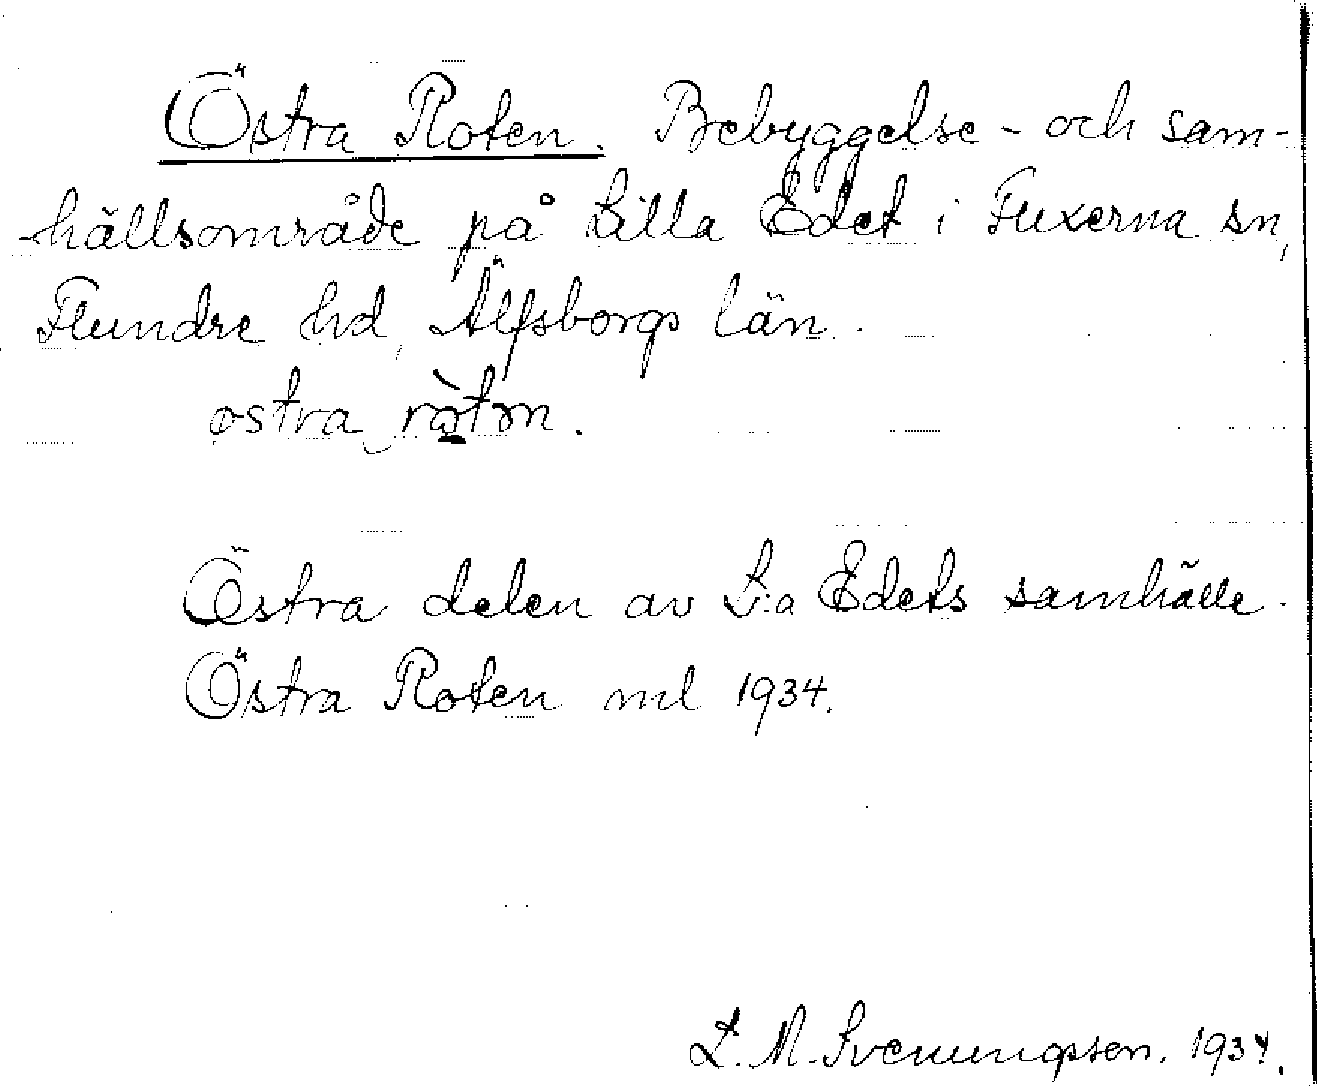 Östra Roten. Bebyggelse- och sam-
hällsområde på Lilla Edet i Fuxerna sn,
Flundre hd, Älfsborgs län.
østra ròtɷn.
Östra delen av L:a Edets samhälle.
Östra Roten ml 1934.
L. M. Svenungsson. 1934.